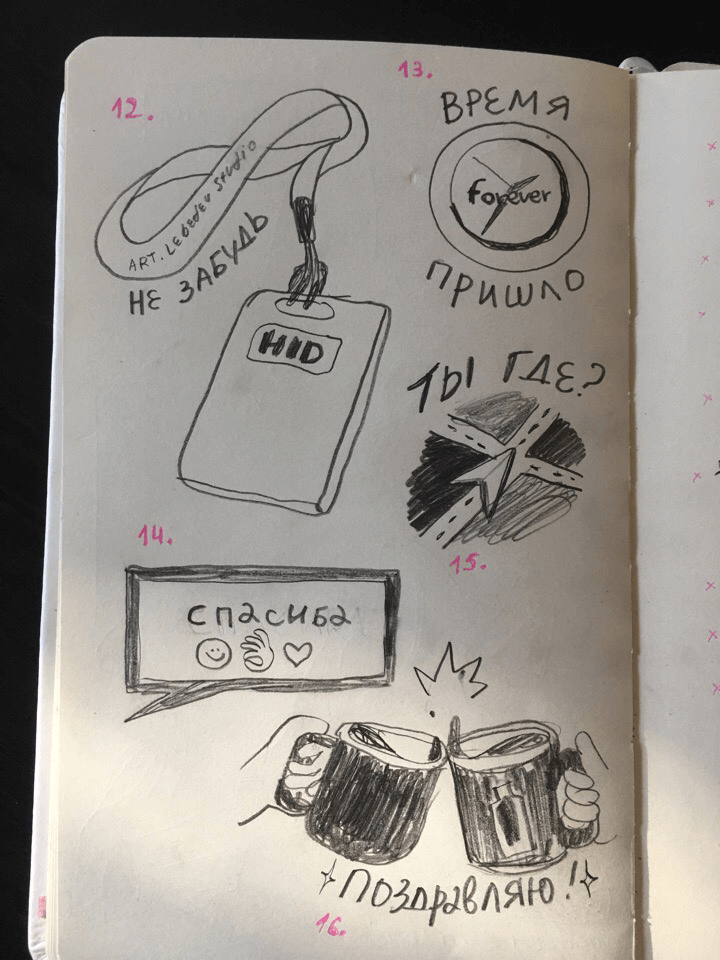 12.
ART. LEBEDEV Studio
НЕ ЗАБУДЬ
HID
13.
ВРЕМЯ
forever
ПРИШЛО
ТЫ ГДЕ?
15.
14.
спасиба
Поздравляю!
16.